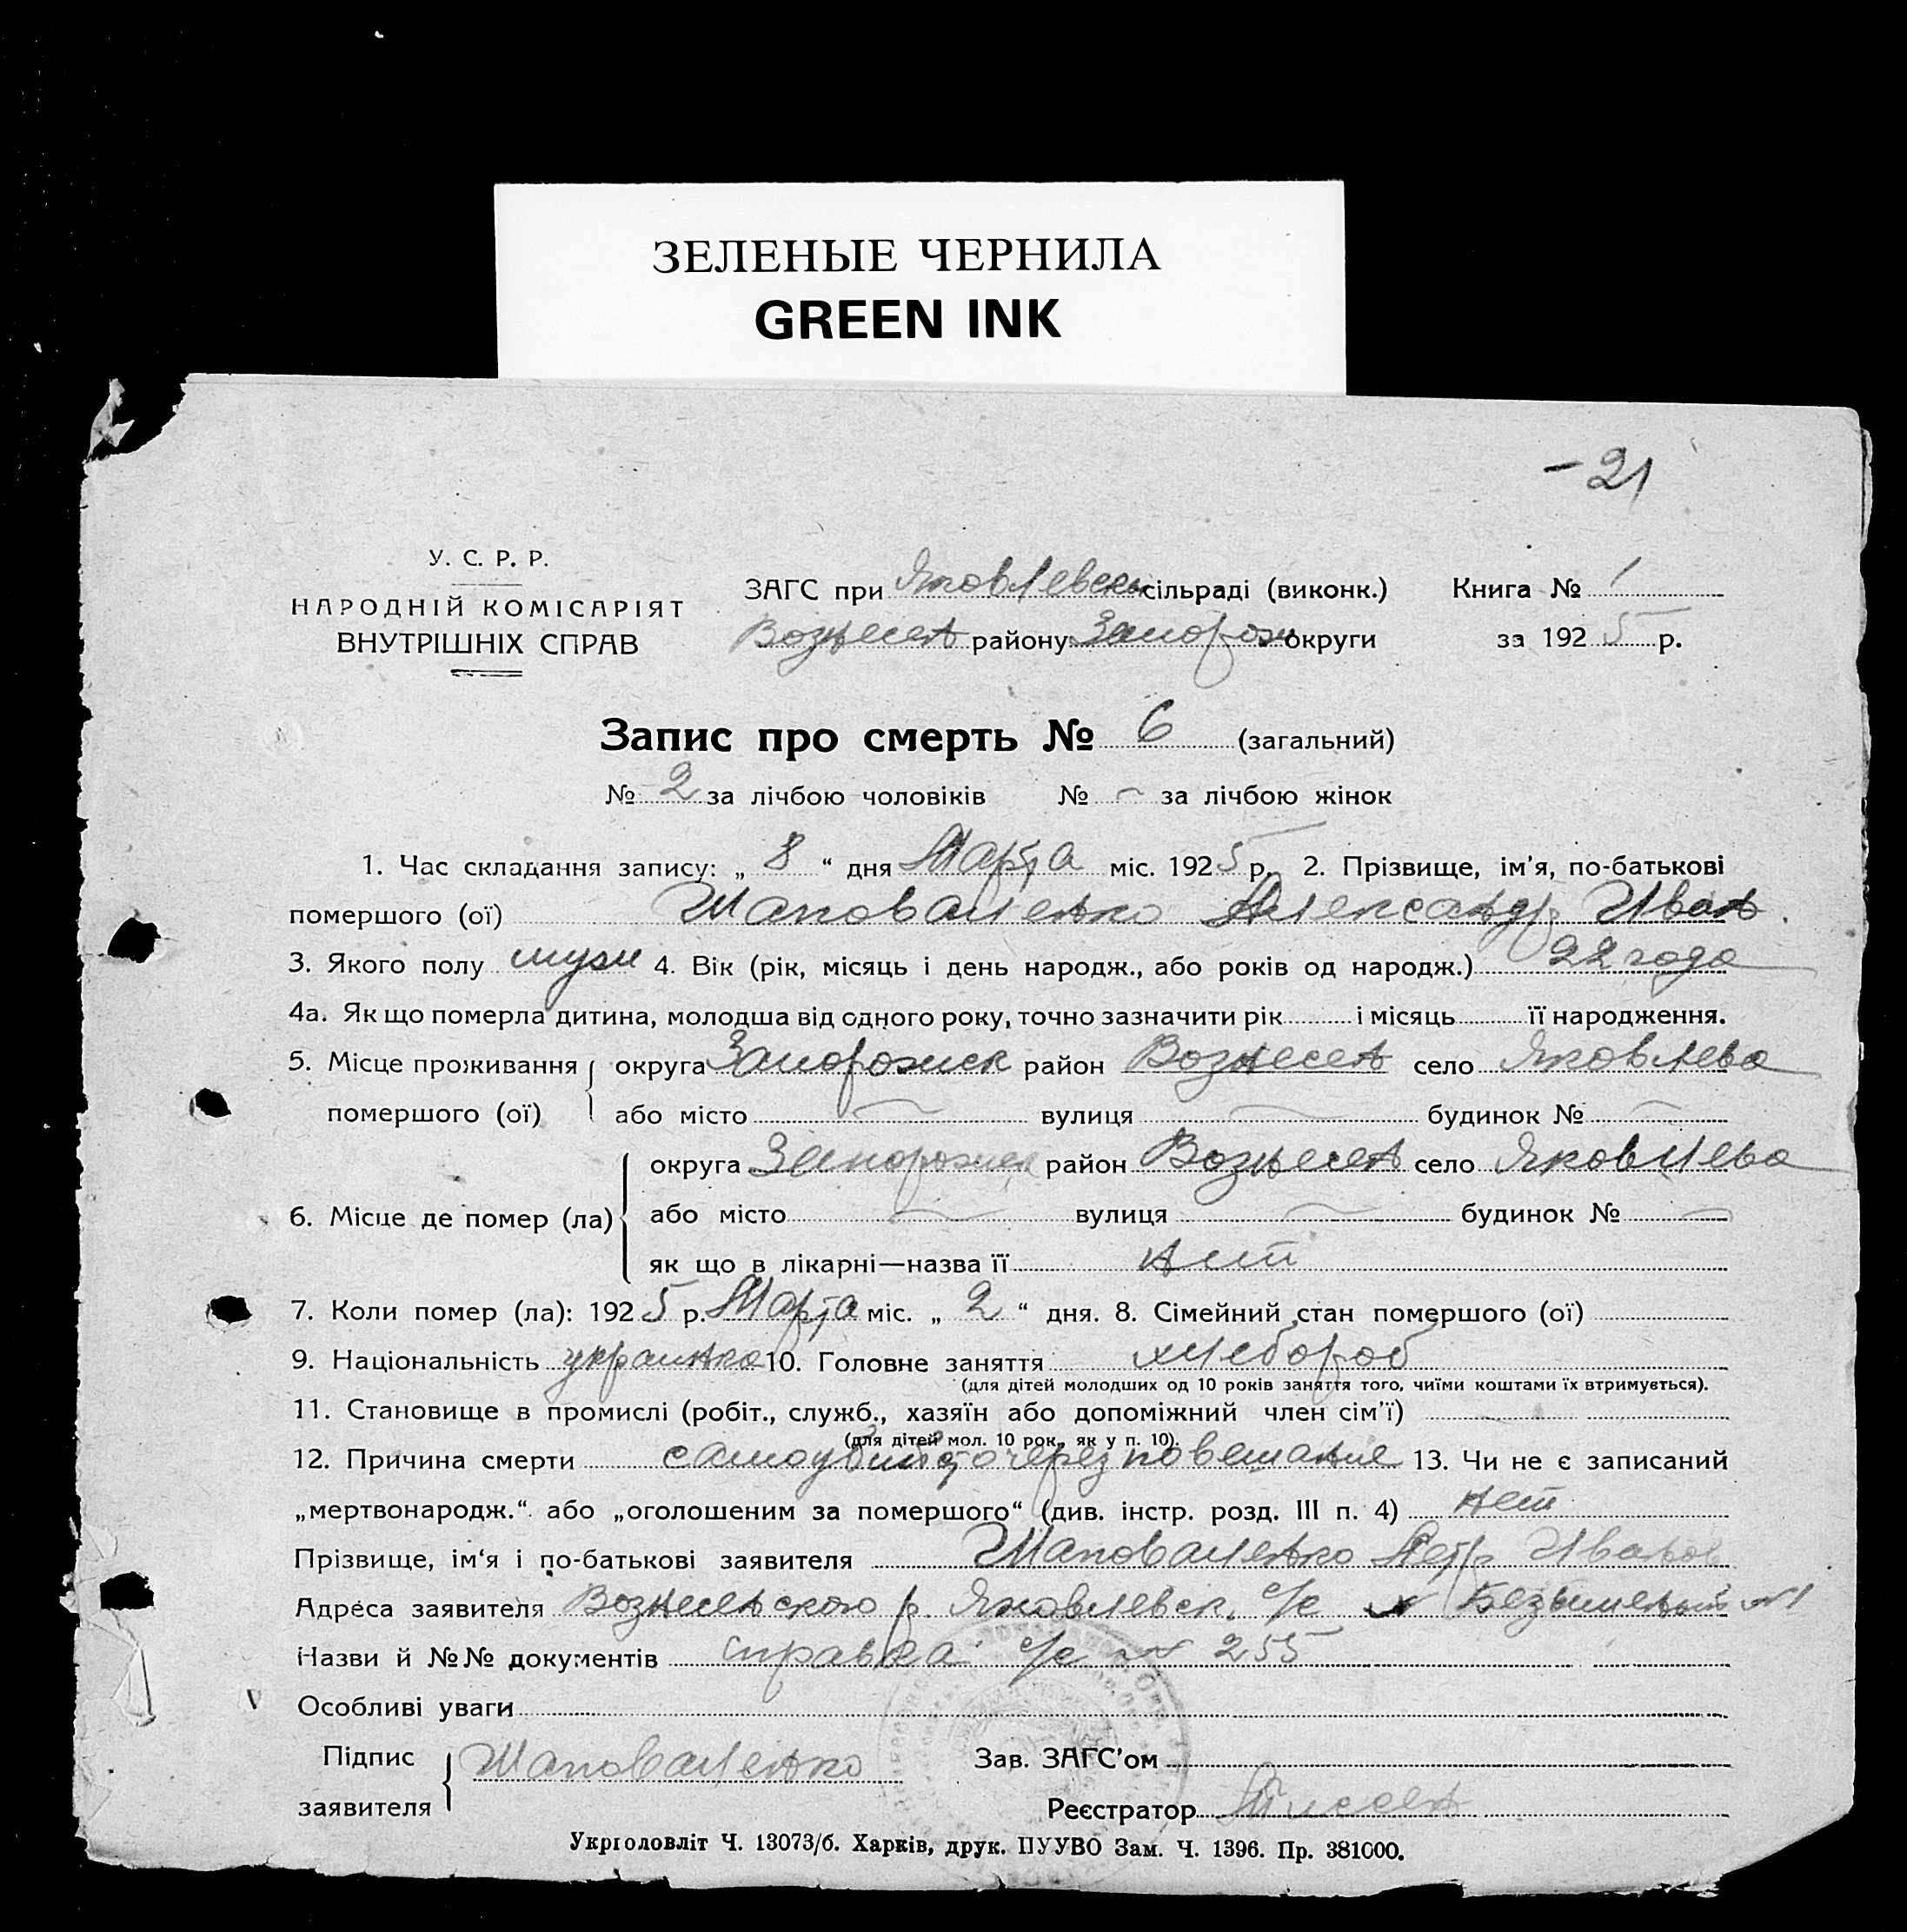 ЗЕЛЕНЫЕ ЧЕРНИЛА
GREEN INK
–21
У. С. Р. Р.
НАРОДНІЙ КОМІСАРІЯТ
ВНУТРІШНІХ СПРАВ
ЗАГС при Яковлевск сільраді (виконк.)
Вознесен району Запорож округи
Книга № 1
за 1925 р.
Запис про смерть № 6 (загальний)
№ 2 за лічбою чоловіків № – за лічбою жінок
1. Час складання запису: „ 8 “ дня Марта міс. 1925 р. 2. Прізвище, ім'я, по-батькові
помершого (ої) Шаповаленко Александр Иван.
3. Якого полу муж 4. Вік (рік, місяць і день народж., або років од народж.) 22 года
4а. Як що померла дитина, молодша від одного року, точно зазначити рік і місяць її народження.
5. Місце проживання помершого (ої) округа Запорожск район Вознесен село Яковлева
або місто – вулиця – будинок № –
6. Місце де помер (ла) округа Запорожск район Вознесен село Яковлева
або місто – вулиця – будинок № –
як що в лікарні—назва її нет
7. Коли помер (ла): 1925 р. Марта міс. „ 2 “ дня. 8. Сімейний стан помершого (ої)
9. Національність 10. Головне заняття хлебороб
(для дітей молодших од 10 років заняття того, чиїми коштами їх втримується).
11. Становище в промислі (робіт., служб., хазяїн або допоміжний член сім'ї)
(для дітей мол. 10 рок., як у п. 10).
12. Причина смерти через повешание 13. Чи не є записаний
„мертвонародж.“ або „оголошеним за помершого“ (див. інстр. розд. III п. 4) нет
Прізвище, ім'я і по-батькові заявителя Шаповаленко Петр Иванов
Адреса заявителя Вознесенского р. Яковлевск. с/с
Назви й №№ документів справка с/с № 255
Особливі уваги
Підпис заявителя Шаповаленко
Зав. ЗАГС'ом
Реєстратор
Укрголовліт Ч. 13073/б. Харків, друк. ПУУВО Зам. Ч. 1396. Пр. 381000.